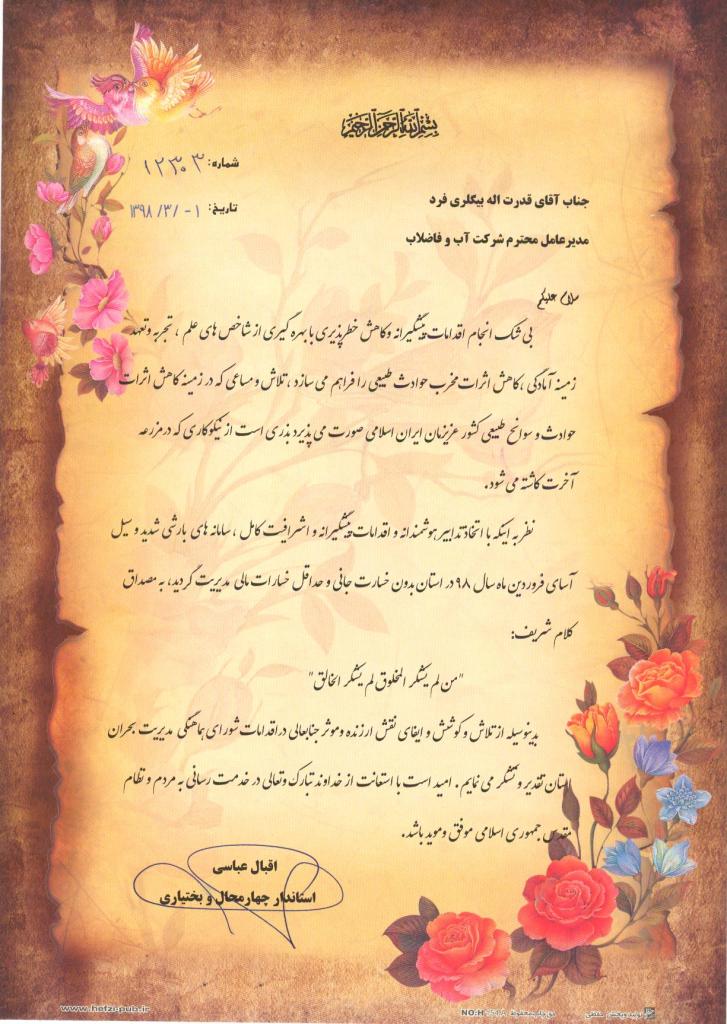 بسم الله الرحمن الرحیم
شماره: ۱۲۳۰۳
تاریخ: ۱ - /۳/ ۱۳۹۸
جناب آقای قدرت اله بیگلری فرد
مدیرعامل محترم شرکت آب و فاضلاب
سلام علیکم
بی شک انجام اقدامات پیشگیرانه وکاهش خطرپذیری با بهره گیری از شاخص های علم ، تجربه وتعهد
زمینه آمادگی ،کاهش اثرات مخرب حوادث طبیعی را فراهم می سازد ، تلاش و مساعی که در زمینه کاهش اثرات
حوادث و سوانح طبیعی کشور عزیزمان ایران اسلامی صورت می پذیرد بذری است از نیکوکاری که درمزرعه
آخرت کاشته می شود.
نظر به اینکه با اتخاذ تدابیر هوشمندانه و اقدامات پیشگیرانه و اشرافیت کامل ، سامانه های بارشی شدید و سیل
آسای فروردین ماه سال ۹۸ در استان بدون خسارت جانی و حداقل خسارات مالی مدیریت گردید، به مصداق
کلام شریف:
"من لم یشکر المخلوق لم یشکر الخالق"
بدینوسیله از تلاش و کوشش و ایفای نقش ارزنده وموثر جنابعالی دراقدامات شورای هماهنگی مدیریت بحران
استان تقدیر و تشکر می نمایم . امید است با استعانت از خداوند تبارک وتعالی در خدمت رسانی به مردم و نظام
مقدس جمهوری اسلامی موفق وموید باشد.
اقبال عباسی
استاندار چهارمحال و بختیاری
www.hefzi-pub.ir
NO:H